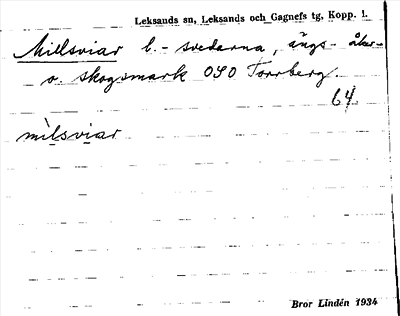 Leksands sn, Leksands och Gagnefs tg, Kopp. l.
Millsviar l. - svedarna, ängs- åker-
o. skogsmark OSO Torrberg.
64
mìlsviar
Bror Lindén 1934